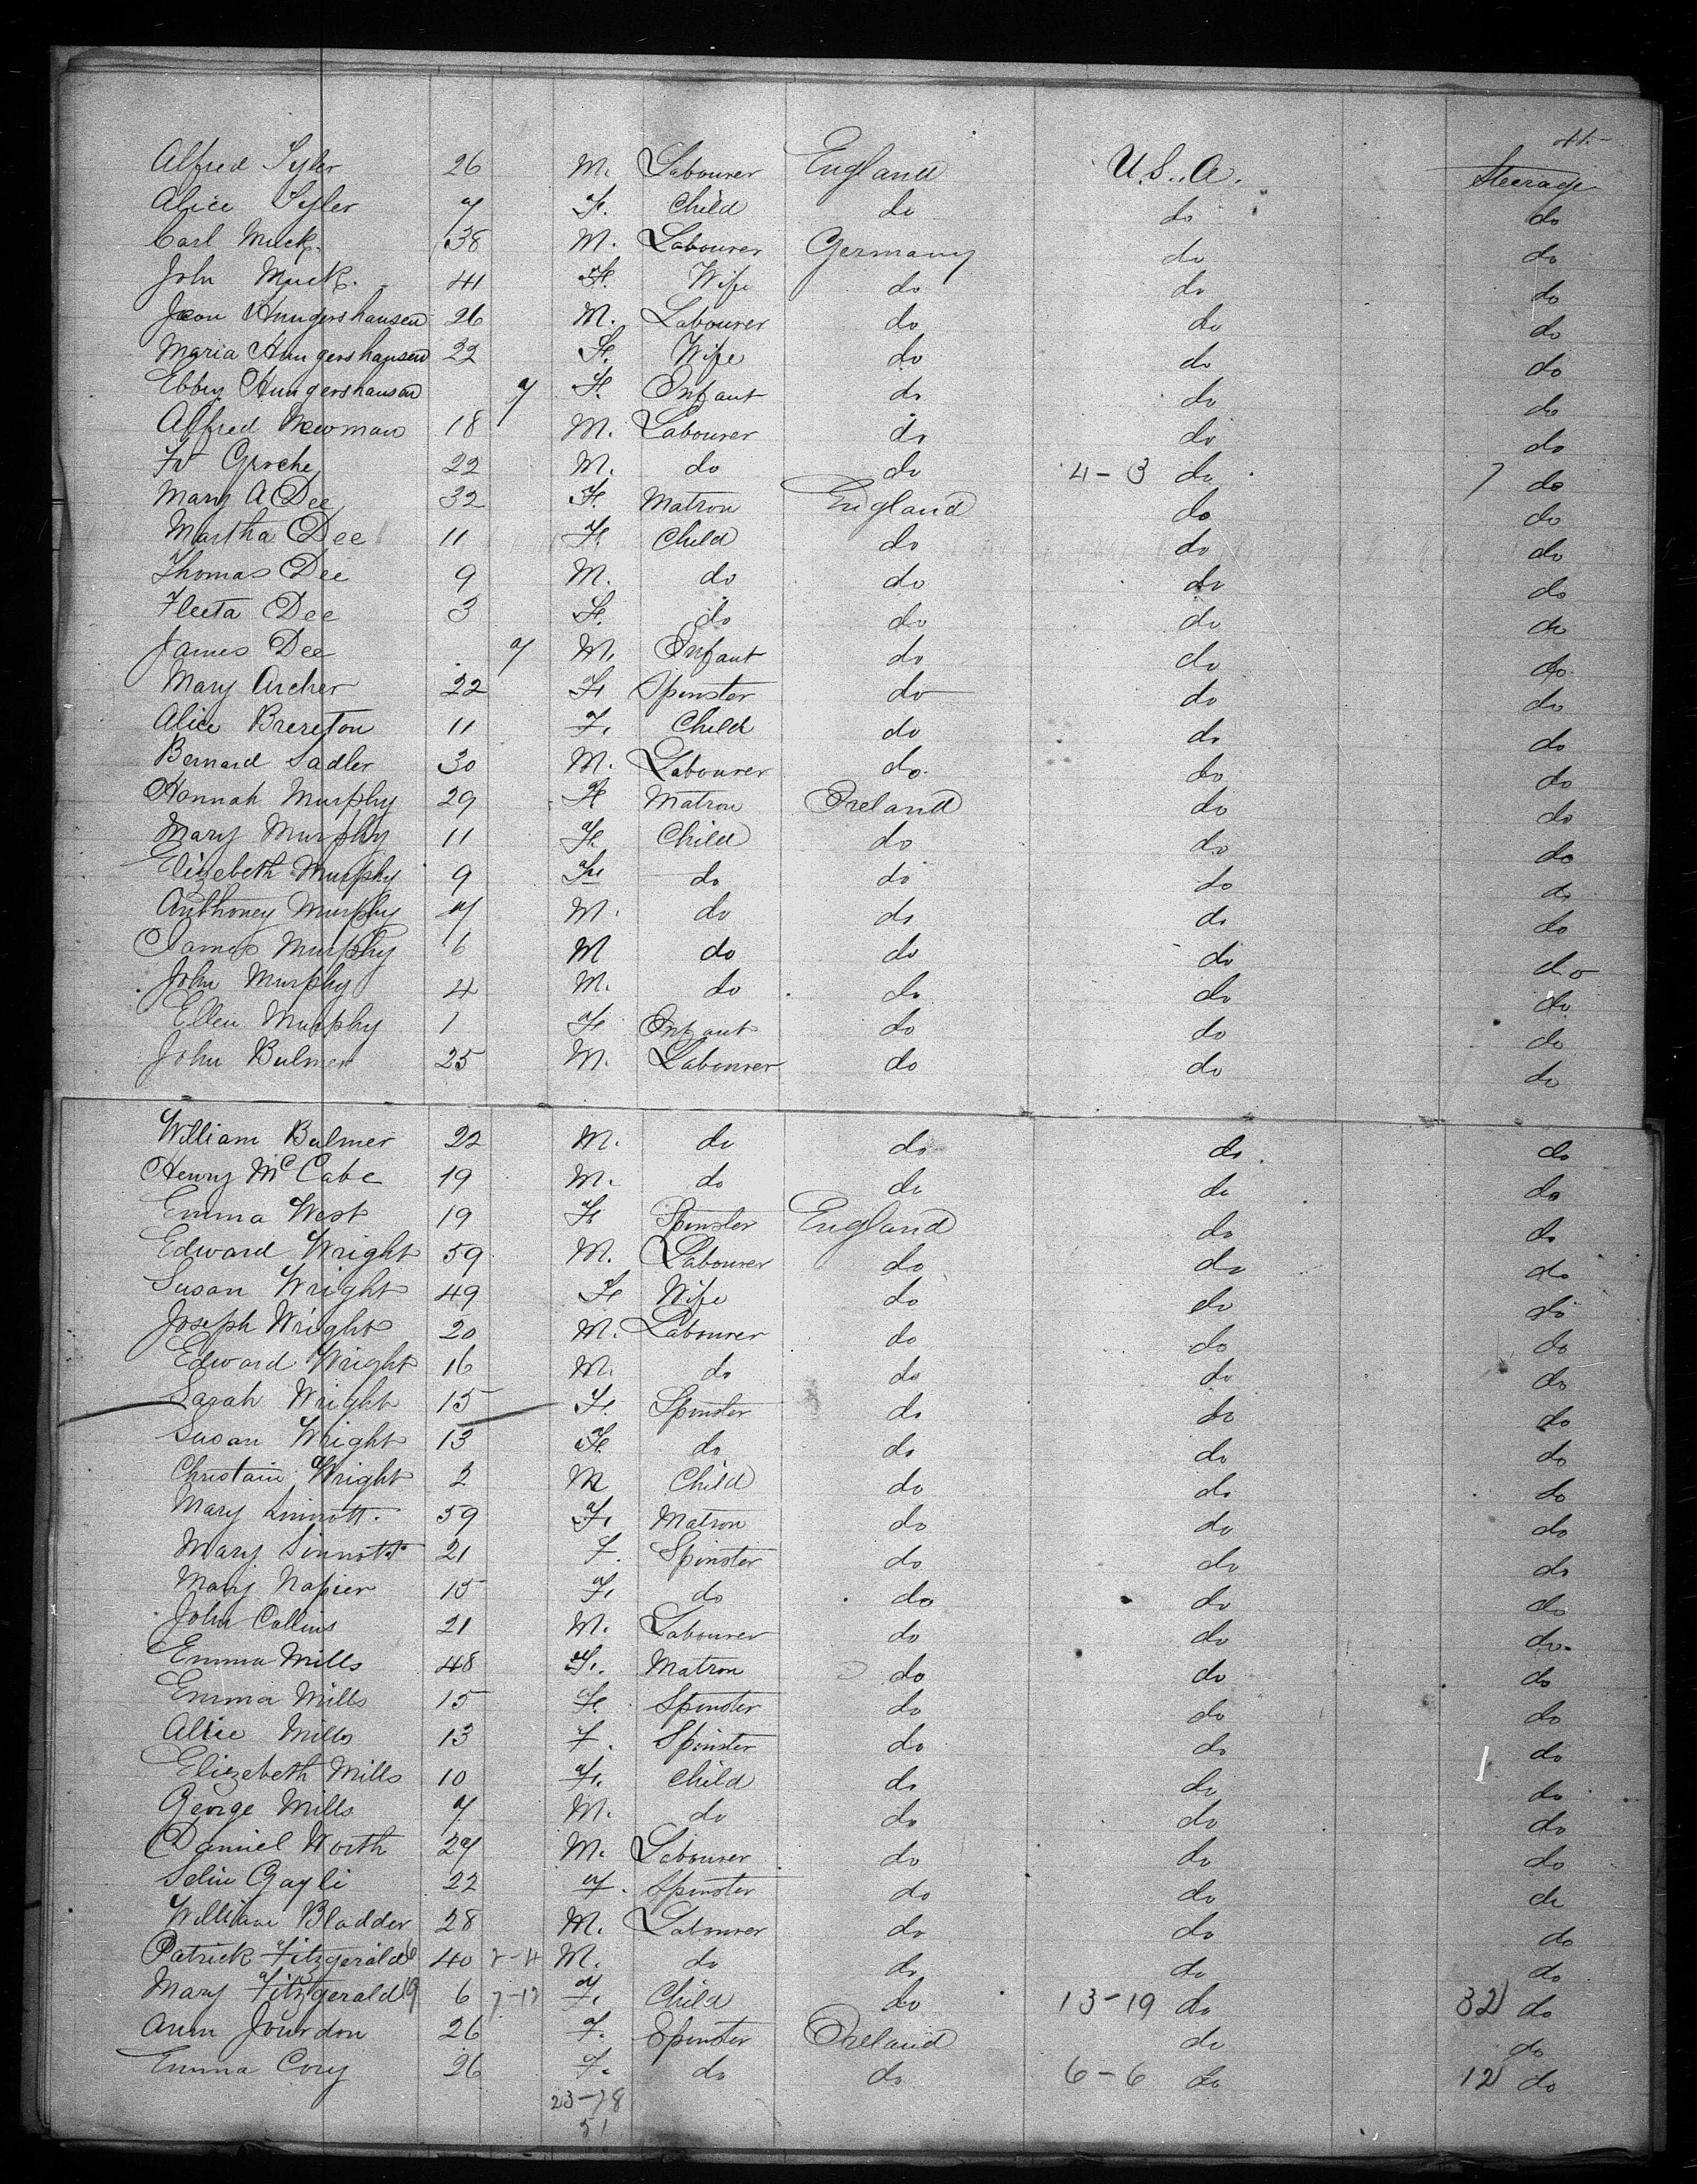 41.
Alfred Tyler 26 M. Labourer England U.S.A. Steerage
Alice Tyler 7 F. Child do do do
Carl Muck. 38 M. Labourer Germany do do
John Muck. 41 F. Wife do do do
Jean Hungershausen 26 M. Labourer do do do
Maria Hungershausen 22 F. Wife do do do
Ebby Hungershausen 7 F. Infant do do do
Alfred Newman 18 M. Labourer do do do
Fr 22 M. do do 4-3 do 7 do
Mary A Dee 32 F. Matron England do do
Martha Dee 11 F. Child do do do
Thomas Dee 9 M. do do do do
Fleeta Dee 3 F. do do do do
James Dee 7 M. Infant do do do
Mary Archer 22 F. Spinster do do do
Alice Brereton 11 F. Child do do do
Bernard Sadler 30 M. Labourer do do do
Hannah Murphy 29 F Matron Ireland do do
Mary Murphy 11 F. Child do do do
Elizebeth Murphy 9 F do do do do
Anthoney Murphy 7 M. do do do do
James Murphy 6 M do do do do
John Murphy 4 M. do do do do
Ellen Murphy 1 F Infant do do do
John Bulmer 25 M. Labourer do do do
William Bulmer 22 M. do do do do
Henry McCabe 19 M. do do do do
Emma West 19 F. Spinster England do do
Edward Wright 59 M. Labourer do do do
Susan Wright 49 F Wife do do do
Joseph Wright 20 M. Labourer do do do
Edward Wright 16 M. do do do do
Sarah Wright 15 F. Spinster do do do
Susan Wright 13 F. do do do do
Christain Wright 2 M Child do do do
Mary Sinnott. 59 F. Matron do do do
Mary Sinnott 21 F. Spinster do do do
Mary Napier 15 F. do do do do
John Collins 21 M. Labourer do do do
Emma Mills 48 F. Matron do do do
Emma Mills 15 F. Spinster do do do
Alice Mills 13 F. Spinster do do do
Elizebeth Mills 10 F. Child do do do
George Mills 7 M. do do do do
Daniel Worth 27 M. Labourer do do do
Selin Gayli 22 F. Spinster do do do
William Bladder 28 M. Labourer do do do
Patrick Fitzgerald 40 M. do do do do
Mary Fitzgerald 6 F. Child do 13-19 do 32 do
Ann Jourdon 26 F. Spinster Ireland do do
Emma Cory 26 F. do do 6-6 do 12 do
23-28
51